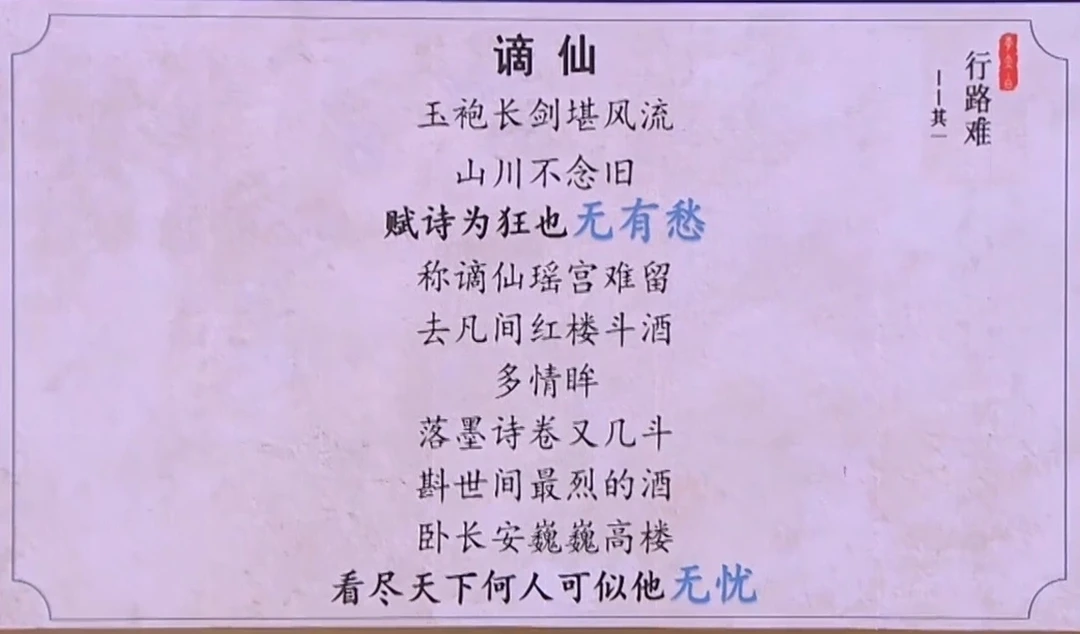 谪仙
玉袍长剑堪风流
山川不念旧
赋诗为狂也无有愁
称谪仙瑶宫难留
去凡间红楼斗酒
多情眸
落墨诗卷又几斗
斟世间最烈的酒
卧长安巍巍高楼
看尽天下何人可似他无忧
行路难
——其一